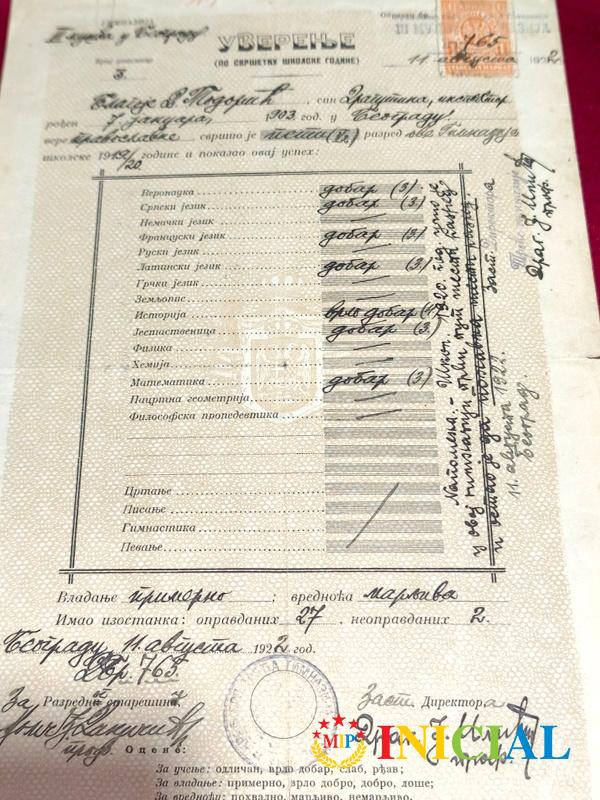 II мушка у Београду
Број уписнице
3.
УВЕРЕЊЕ
(ПО СВРШЕТКУ ШКОЛСКЕ ГОДИНЕ)
765
11 августа 1922.
Благоје Д. Тодорић, син Драгутина, инспектор
рођен 7 јануара, 1903 год. у Београду.
вере православне свршио је пети (V.) разред ове Гимназије
школске 1919/20 године и показао овај успех:
Веронаука добар (3.)
Српски језик добар (3.)
Немачки језик
Француски језик добар (3.)
Руски језик
Латински језик добар (3.)
Грчки језик
Земљопис
Историја врло добар (4.)
Јестаственица добар (3.)
Физика
Хемија
Математика добар (3.)
Нацртна геометрија
Философска пропедевтика
Цртање
Писање
Гимнастика
Певање
Напомена. – Школ. 1920. год. учио је
у овој гимназији први пут шести разред
и остао је да понавља шести разред.
11. августа 1922.
Београд.
Заст. Директора
Драг. Ј. Илић
проф.
Владање примерно; вредноћа марљива
Имао изостанка: оправданих 27, неоправданих 2.
Београду, 11. августа 1922 год.
Бр. 765
За Разредног старешину
проф.
Заст. Директора
Драг. Ј. Илић
проф.
Оцене:
За учење: одличан, врло добар, добар, слаб, рђав;
За владање: примерно, врло добро, добро, лоше;
За вредноћу: похвално, марљиво, немарљиво.
MIP INICIAL